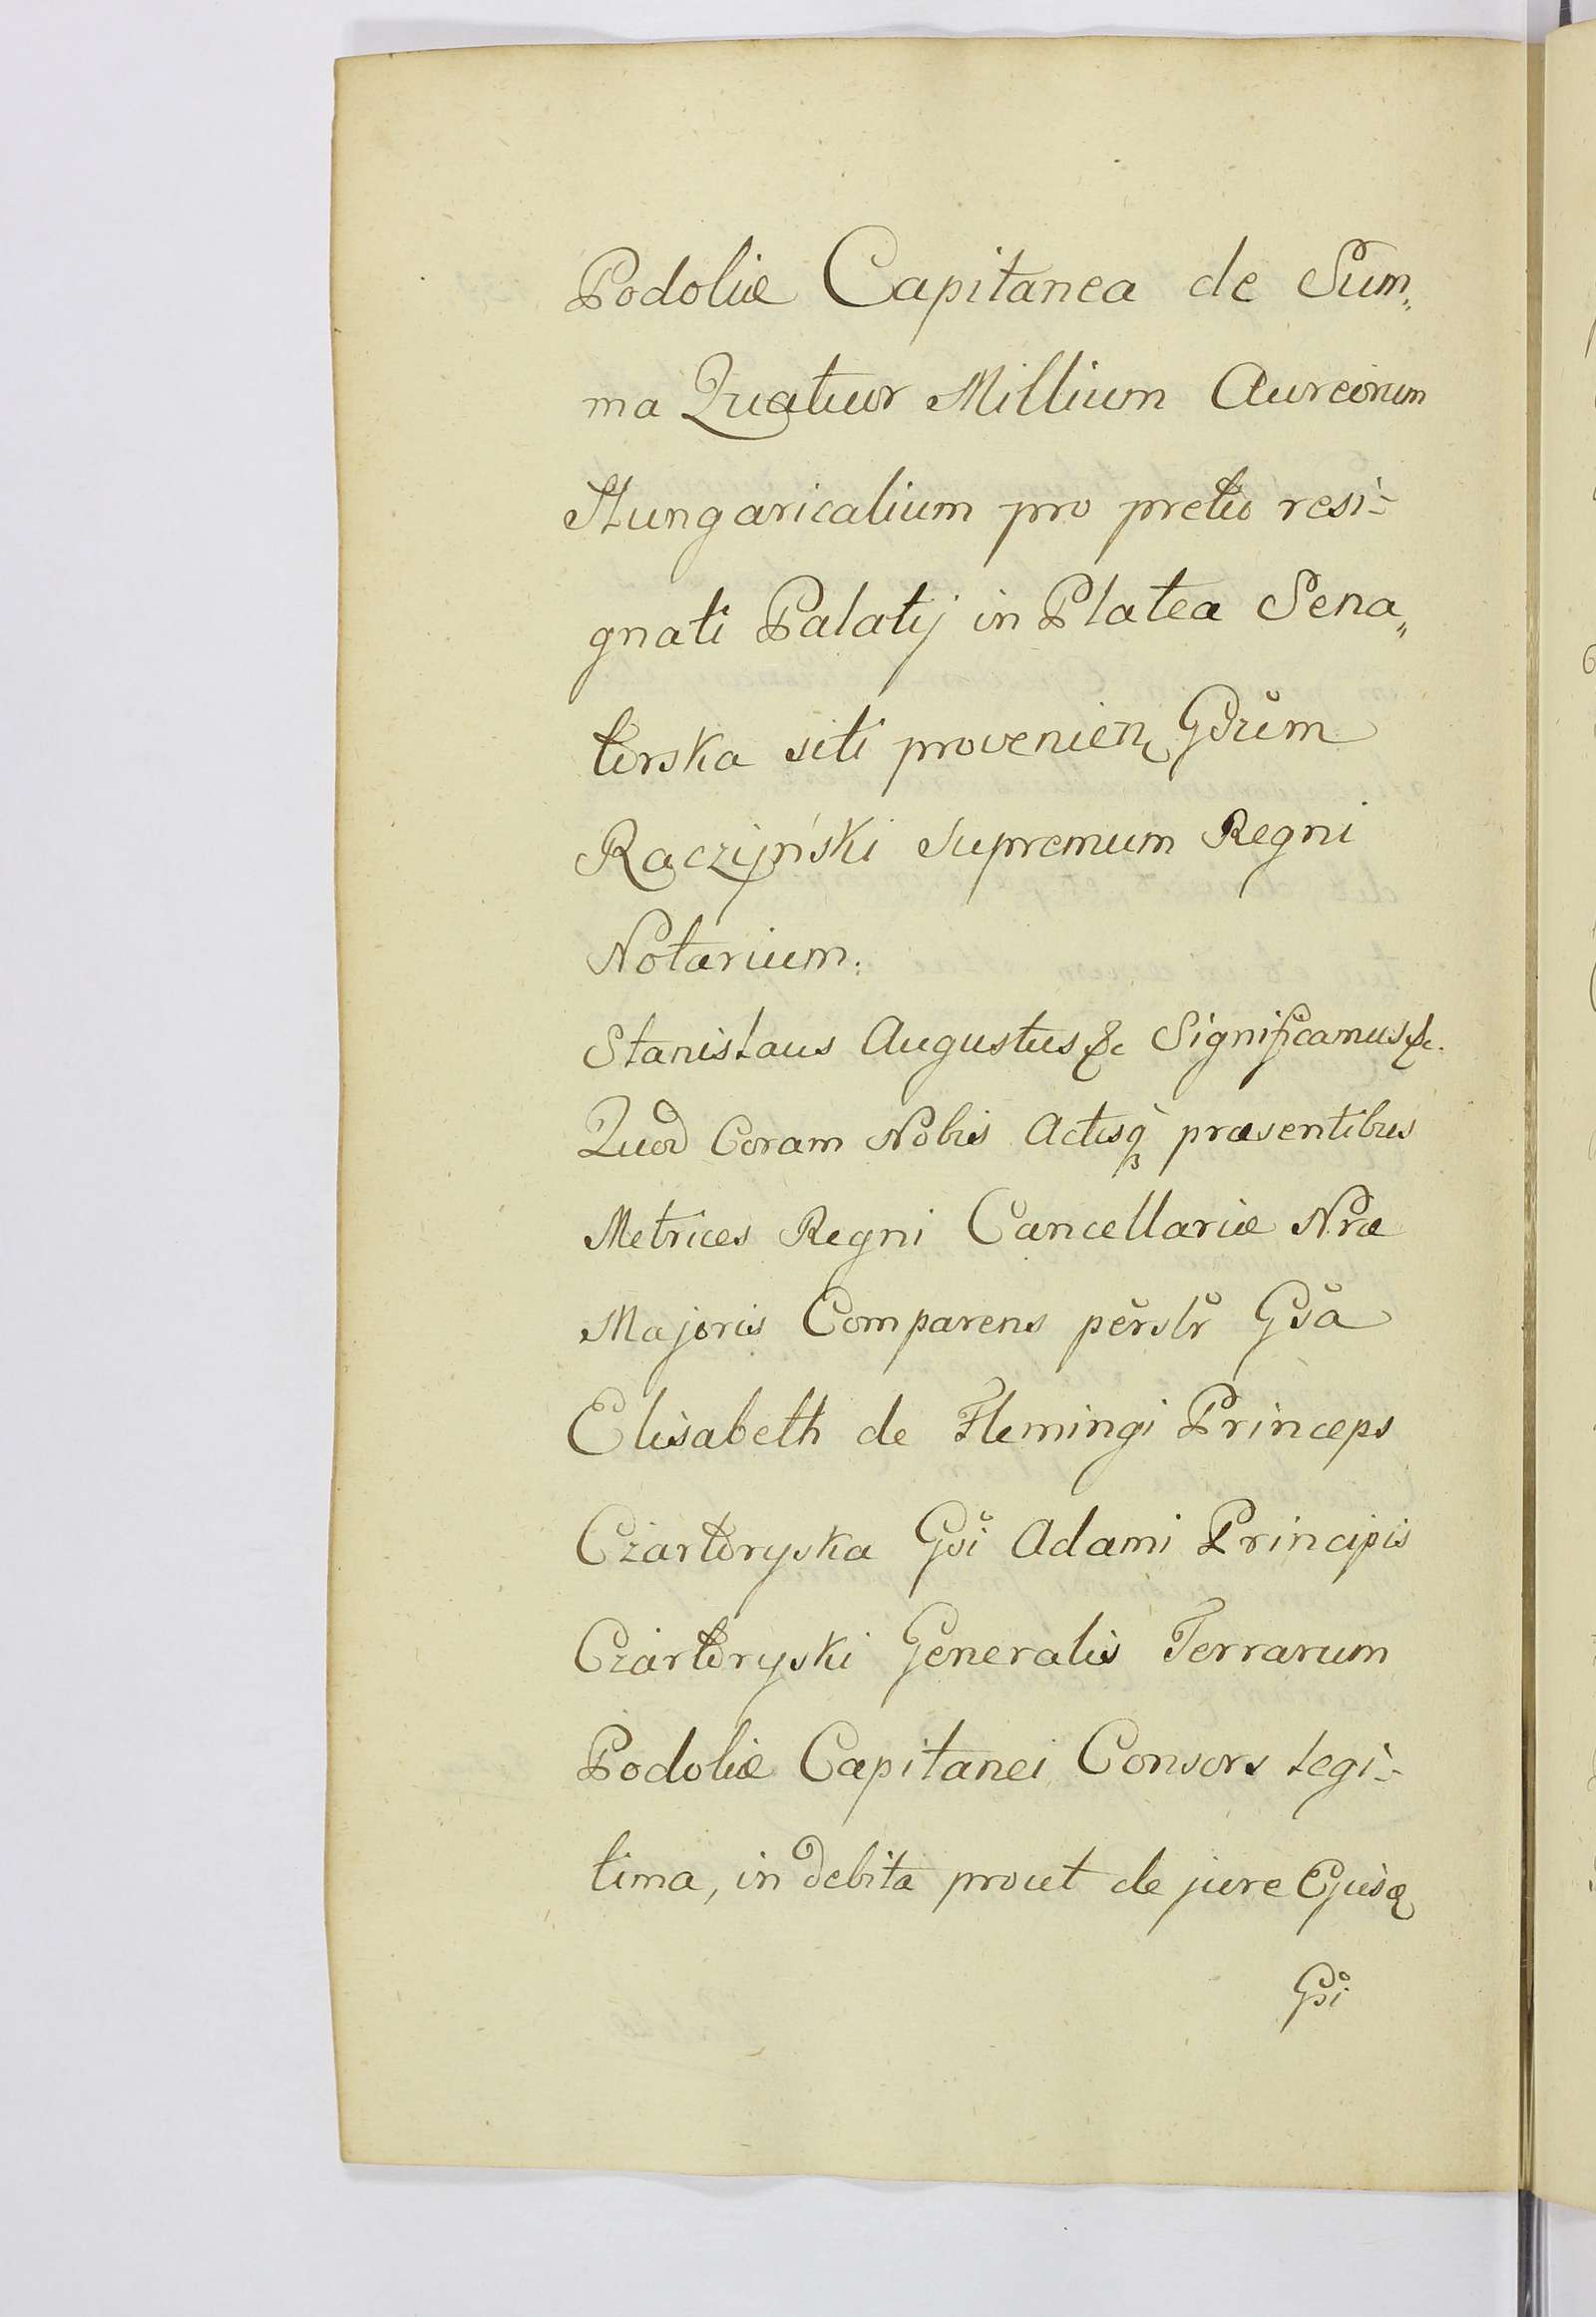 Podoliæ Capitanea de Sum„
ma Quatuor Millium Aureorum
Hungaricalium pro pretio resi-
gnati Palatij in Platea Sena„
torska siti provenien Gdrum
Raczyński Supremum Regni
Notarium.
Stanislaus Augustus &c Significamus &c.
Quod Coram Nobis Actisq præsentibus
Metrices Regni Cancellariæ Nræ
Majoris Comparens perslr Gsa
Elisabeth de Flemingi Princeps
Czartoryska Gsi Adami Principis
Czartoryski Generalis Terrarum
Podoliæ Capitanei Consors legi-
tima, in debita prout de jure Ejusq
Gsi